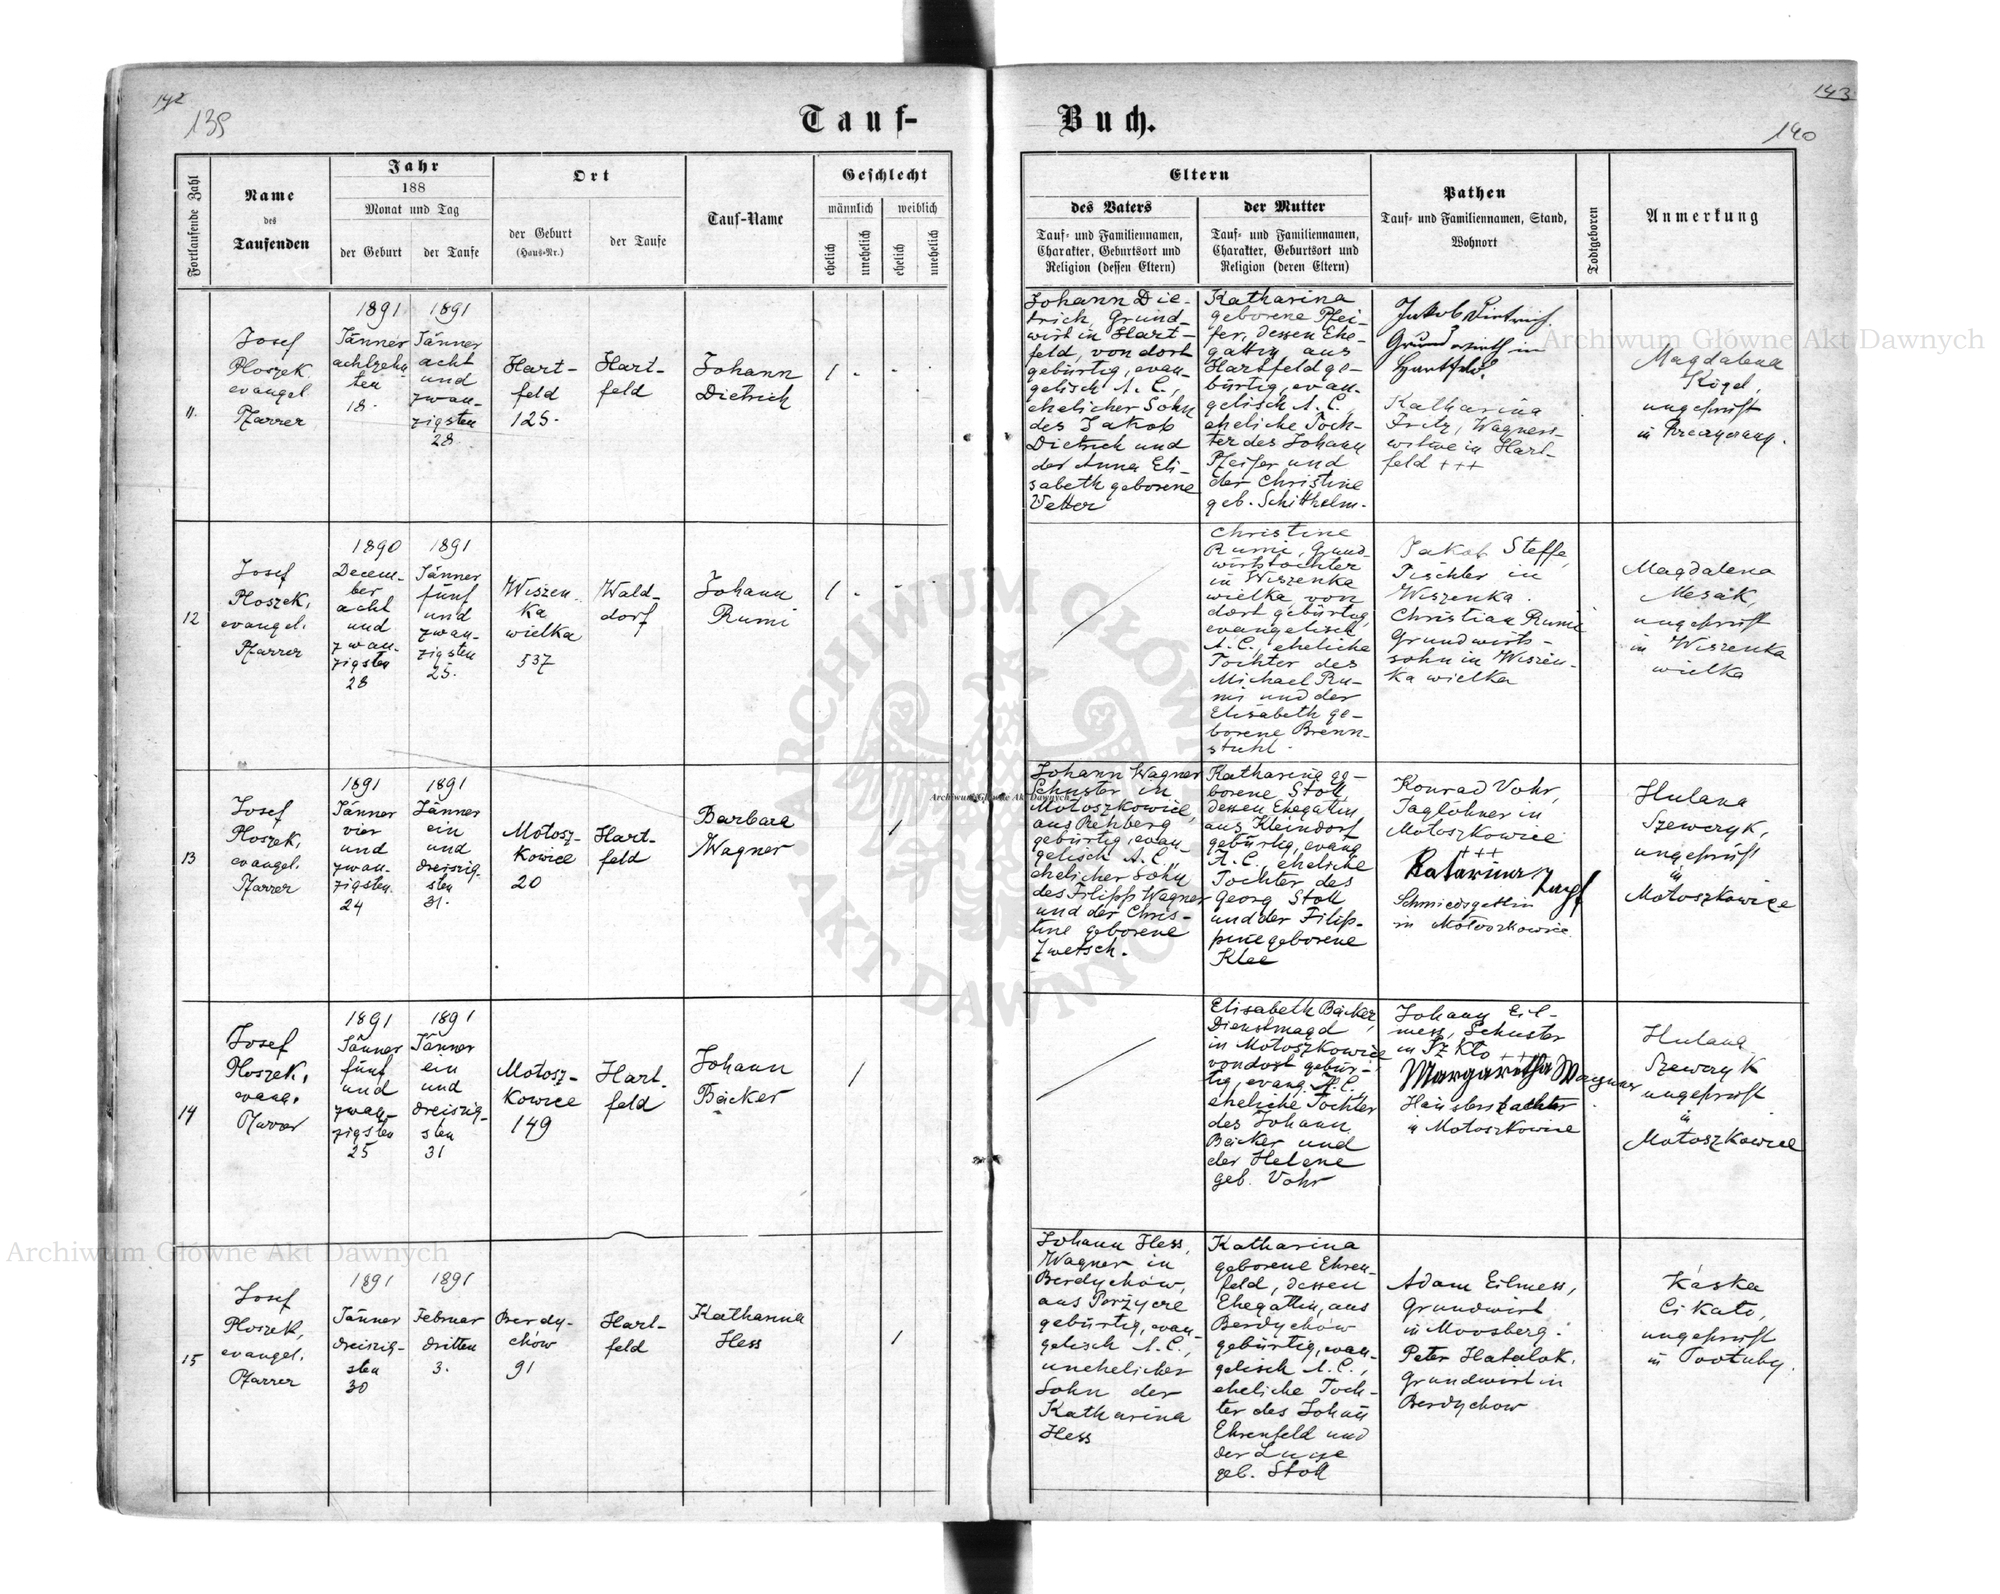 142
139
143
140
Tauf-
Buch.
Fortlaufende Zahl
Name
des
Taufenden
Jahr
188
Monat und Tag
der Geburt
der Taufe
Ort
der Geburt
(Haus-Nr.)
der Taufe
Tauf-Name
Geschlecht
männlich
weiblich
ehelich
unehelich
ehelich
unehelich
Eltern
des Vaters
Tauf- und Familiennamen,
Charakter, Geburtsort und
Religion (dessen Eltern)
der Mutter
Tauf- und Familiennamen,
Charakter, Geburtsort und
Religion (deren Eltern)
Pathen
Tauf- und Familiennamen, Stand,
Wohnort
Todtgeboren
Anmerkung
11.
Josef
Ploszek
evangel
Pfarrer
1891
Jänner
achtzehn
ten
18.
1891
Jänner
acht
und
zwan-
zigsten
28
Hart-
feld
125.
Hart-
feld
Johann
Dietrich
1
Johann Die-
trich, Grund-
wirt in Hart-
feld, von dort
gebürtig, evan-
gelisch A. C.,
ehelicher Sohn
des Jakob
Dietrich und
der Anna Eli-
sabeth geborene
Vetter
Katharina
geborene Pfei-
fer, dessen Ehe-
gattin aus
Hartfeld ge-
bürtig, evan-
gelisch A. C.,
eheliche Toch-
ter des Johann
Pfeifer und
der Christine
geb. Schitthelm.
Jakob Dietrich
Grundwirth in
Hartfeld.
Katharina
Fritz, Wagners-
witwe in Hart-
feld +++
Magdalena
Kögel,
ungeprüft
in
12
Josef
Ploszek,
evangel.
Pfarrer
1890
Decem-
ber
acht
und
zwan-
zigsten
28
1891
Jänner
fünf
und
zwan-
zigsten
25.
Wiszen-
ka
wielka
537
Wald-
dorf
Johann
Rumi
1
Christine
Rumi, Grund-
wirtstochter
in Wiszenka
wielka von
dort gebürtig,
evangelisch
A. C., eheliche
Tochter des
Michael Ru-
mi und der
Elisabeth ge-
borene Brenn-
stuhl.
Jakob Steffe,
Tischler in
Wiszenka.
Christian Rumi
Grundwirts-
sohn in Wiszen-
ka wielka
Magdalena
Mesak,
ungeprüft
in Wiszenka
wielka
13
Josef
Ploszek,
evangel.
Pfarrer
1891
Jänner
vier
und
zwan-
zigsten
24
1891
Jänner
ein
und
dreiszig-
sten
31.
Motosz-
kowice
20
Hart-
feld
Barbara
Wagner
1
Johann Wagner
Schuster in
Motoszkowice,
aus Rehberg
gebürtig, evan-
gelisch A. C.,
ehelicher Sohn
des Filipp Wagner
und der Chris-
tine geborene
Zwetsch.
Katharina ge-
borene Stoll,
dessen Ehegattin
aus Kleindorf
gebürtig, evang
A. C., eheliche
Tochter des
Georg Stoll
und der Filip-
pine geborene
Klee
Konrad Vohr,
Taglöhner in
Motoszkowice
+++
Katarina Zapf
Schmiedsgattin
in Motoszkowice
Hulana
Szewczyk,
ungeprüft
in
Motoszkowice
14
Josef
Ploszek,
evang.
Pfarrer
1891
Jänner
fünf
und
zwan-
zigsten
25
1891
Jänner
ein
und
dreiszig-
sten
31
Motosz-
kowice
149
Hart-
feld
Johann
Bäcker
1
Elisabeth Bäcker,
Dienstmagd
in Motoszkowice
von dort gebür-
tig, evang. A. C.,
eheliche Tochter
des Johann
Bäcker und
der Helene
geb. Vohr
Johann Eil-
mess, Schuster
in Szkto +++
Margaretha Wagner
Häuslerstochter
in Motoszkowice
Hulana
Szewczyk
ungeprüft
in
Motoszkowice
15
Josef
Ploszek,
evangel.
Pfarrer
1891
Jänner
dreiszig-
sten
30
1891
Februar
dritten
3.
Berdy-
chów
91
Hart-
feld
Katharina
Hess
1
Johann Hess,
Wagner in
Berdychów,
aus Porzycze
gebürtig, evan-
gelisch A. C.,
unehelicher
Sohn der
Katharina
Hess
Katharina
geborene Ehren-
feld, dessen
Ehegattin, aus
Berdychów
gebürtig, evan-
gelisch A. C.,
eheliche Toch-
ter des Johann
Ehrenfeld und
der
geb. Stoll
Adam Eilmess,
Grundwirt
in Moosberg.
Peter Hatalok,
Grundwirt in
Berdychow
Kaska
Cikato,
ungeprüft
in
Archiwum Główne Akt Dawnych
Archiwum Główne Akt Dawnych
Archiwum Główne Akt Dawnych
ARCHIWUM GŁÓWNE AKT DAWNYCH